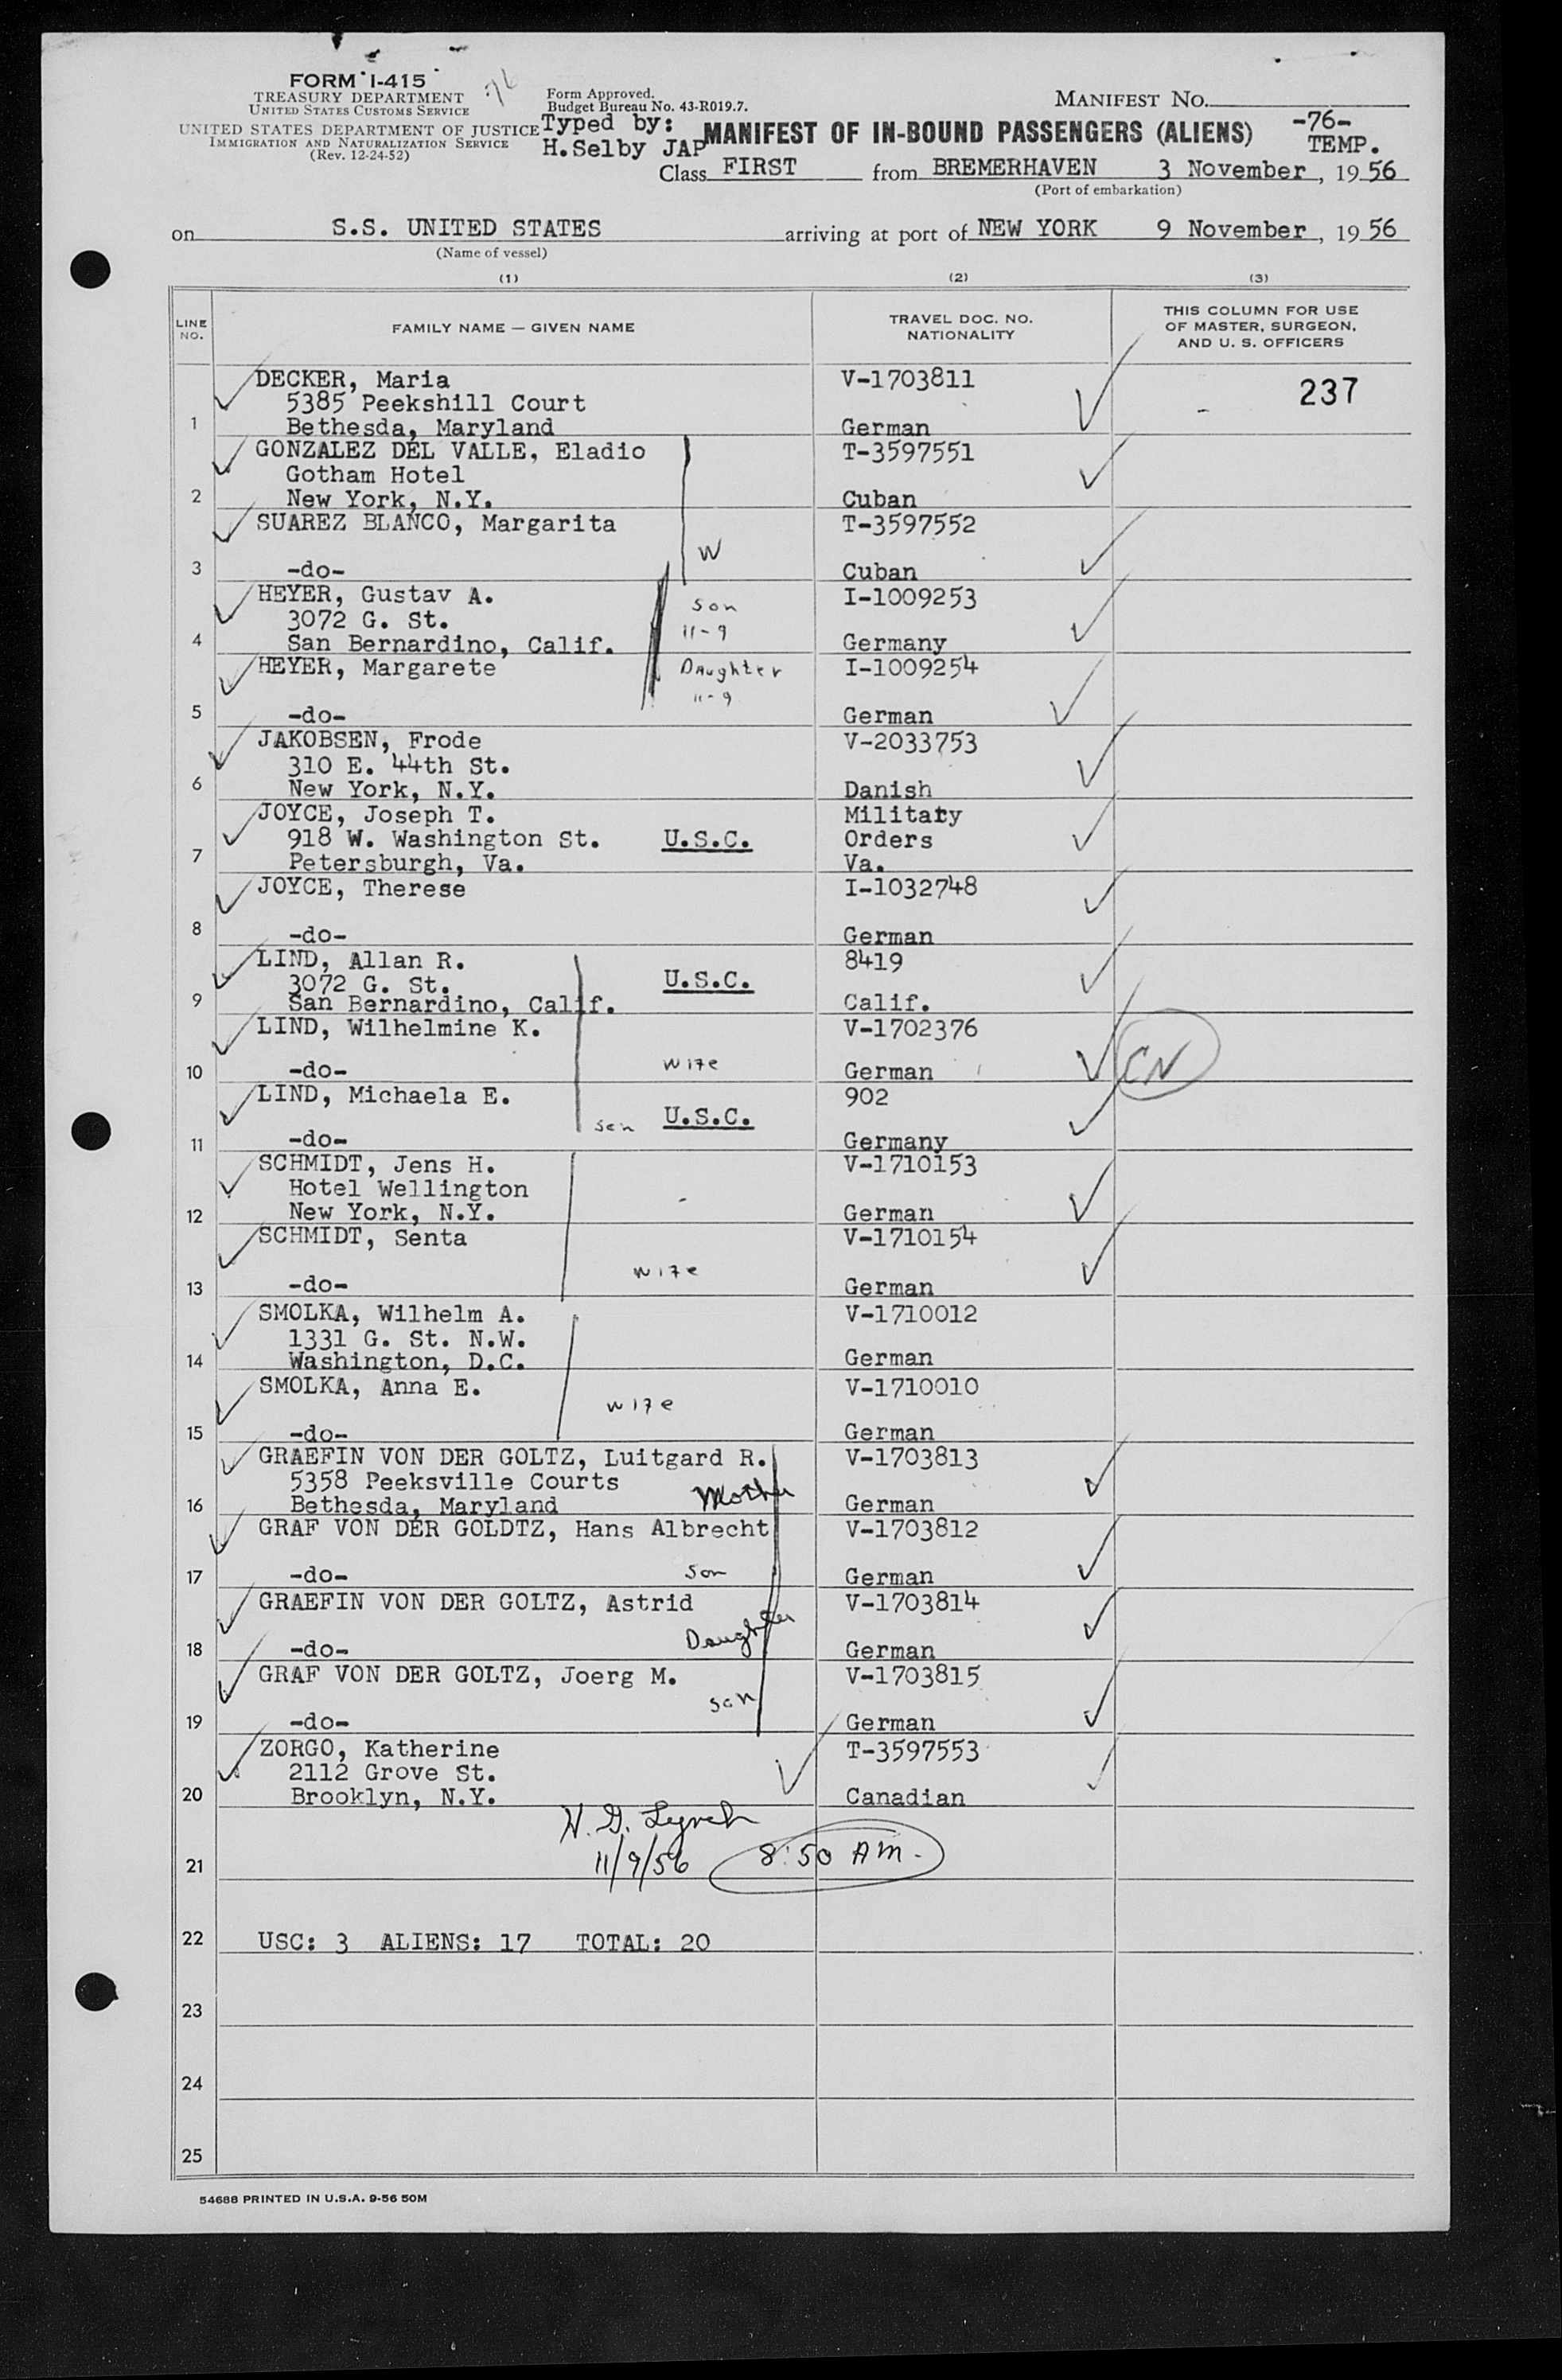 FORM I-415
TREASURY DEPARTMENT
UNITED STATES CUSTOMS SERVICE
UNITED STATES DEPARTMENT OF JUSTICE
IMMIGRATION AND NATURALIZATION SERVICE
(Rev. 12-24-52)
Form Approved.
Budget Bureau No. 43-R019.7.
Typed by:
H.Selby JAP
MANIFEST NO.
MANIFEST OF IN-BOUND PASSENGERS (ALIENS)
-76-
TEMP.
Class FIRST from BREMERHAVEN 3 November, 1956
(Port of embarkation)
on S.S. UNITED STATES arriving at port of NEW YORK 9 November, 1956
(Name of vessel)
(1) (2) (3)
LINE NO.
FAMILY NAME — GIVEN NAME
TRAVEL DOC. NO.
NATIONALITY
THIS COLUMN FOR USE
OF MASTER, SURGEON,
AND U. S. OFFICERS
DECKER, Maria V-1703811 237
5385 Peekshill Court
1 Bethesda, Maryland German
GONZALEZ DEL VALLE, Eladio T-3597551
Gotham Hotel
2 New York, N.Y. Cuban
SUAREZ BLANCO, Margarita T-3597552
W
3 -do- Cuban
HEYER, Gustav A. I-1009253
3072 G. St. Son
4 San Bernardino, Calif. 11-9 Germany
HEYER, Margarete Daughter I-1009254
11-9
5 -do- German
JAKOBSEN, Frode V-2033753
310 E. 44th St.
6 New York, N.Y. Danish
JOYCE, Joseph T. Military
918 W. Washington St. U.S.C. Orders
7 Petersburgh, Va. Va.
JOYCE, Therese I-1032748
8 -do- German
LIND, Allan R. 8419
3072 G. St. U.S.C.
9 San Bernardino, Calif. Calif.
LIND, Wilhelmine K. V-1702376
10 -do- wife German CN
LIND, Michaela E. 902
son U.S.C.
11 -do- Germany
SCHMIDT, Jens H. V-1710153
Hotel Wellington
12 New York, N.Y. German
SCHMIDT, Senta V-1710154
13 -do- wife German
SMOLKA, Wilhelm A. V-1710012
1331 G. St. N.W.
14 Washington, D.C. German
SMOLKA, Anna E. V-1710010
wife
15 -do- German
GRAEFIN VON DER GOLTZ, Luitgard R. V-1703813
5358 Peeksville Courts
16 Bethesda, Maryland Mother German
GRAF VON DER GOLDTZ, Hans Albrecht V-1703812
17 -do- son German
GRAEFIN VON DER GOLTZ, Astrid V-1703814
18 -do- Daughter German
GRAF VON DER GOLTZ, Joerg M. V-1703815
son
19 -do- German
ZORGO, Katherine T-3597553
2112 Grove St.
20 Brooklyn, N.Y. Canadian
W. G. Lynch
21 11/9/56 8:50 AM.
22 USC: 3 ALIENS: 17 TOTAL: 20
23
24
25
54688 PRINTED IN U.S.A. 9-56 50M